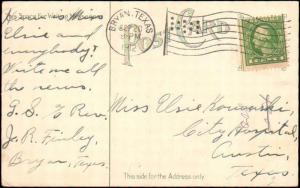 This Space for Writing Messages
to Miss
Elsie and
everybody.
Write me all
the news.
G. S. & Rev.
J. R. Finley,
Bryan, Texas.
BRYAN, TEXAS
SEP 20
8 PM
Post Card
Miss Elsie
City Hospital,
Austin,
Texas.
This side for the Address only